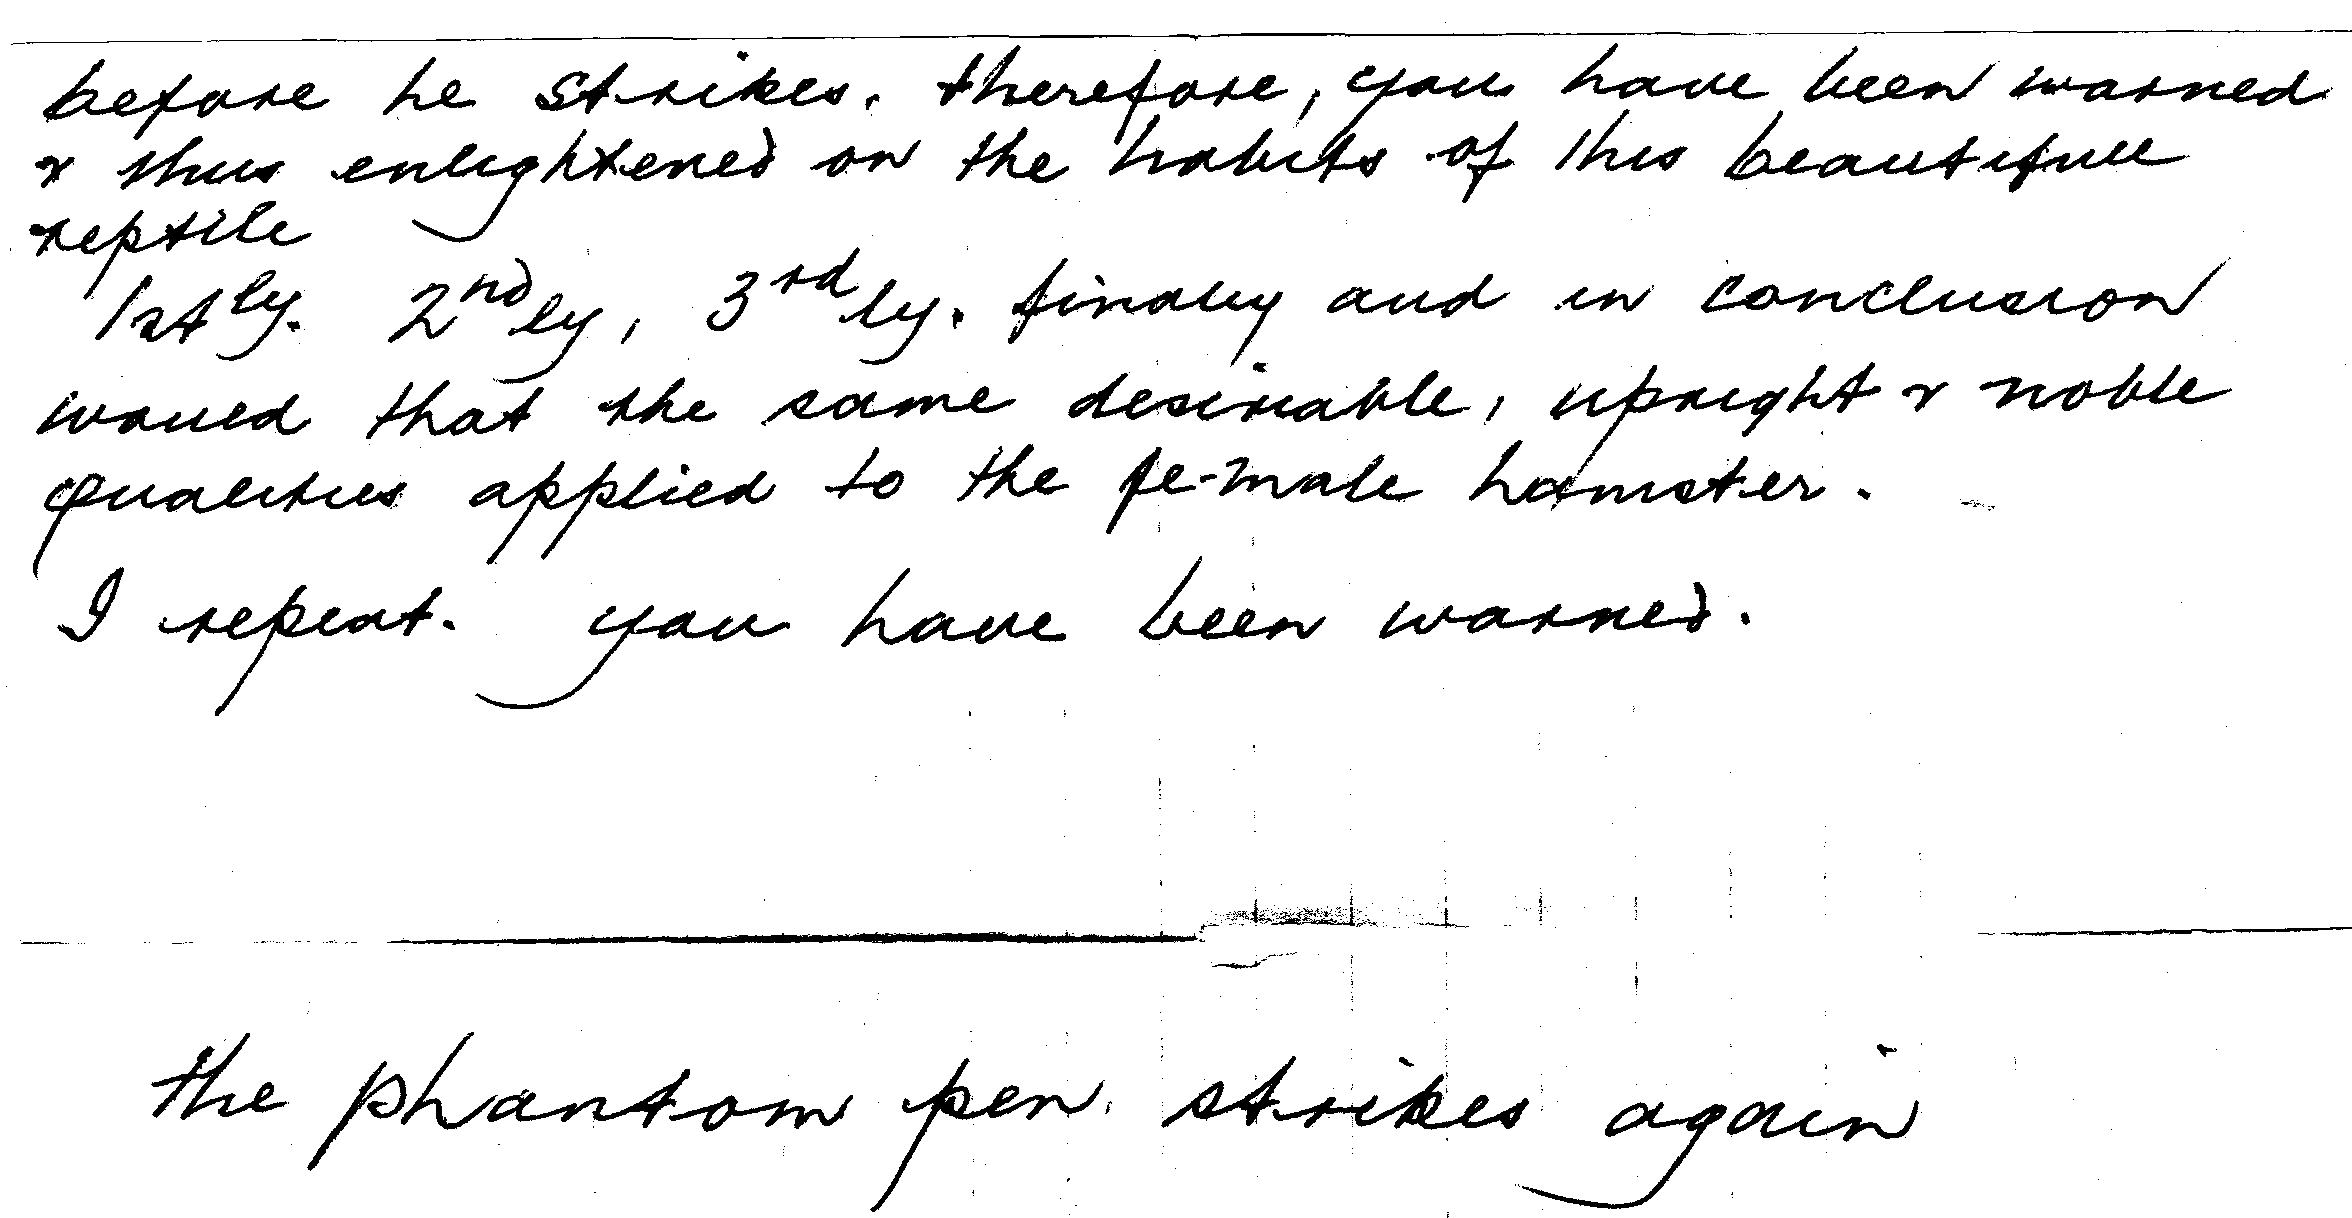 before he strikes. therefore, you have been warned
& thus enlightened on the habits of this beautifull
reptile
1stly. 2ndly, 3rdly. finaly and in conclusion
would that the same desirable, upright & noble
qualities applied to the fe-male hamster.
I repeat. you have been warned.
the phantom pen strikes again